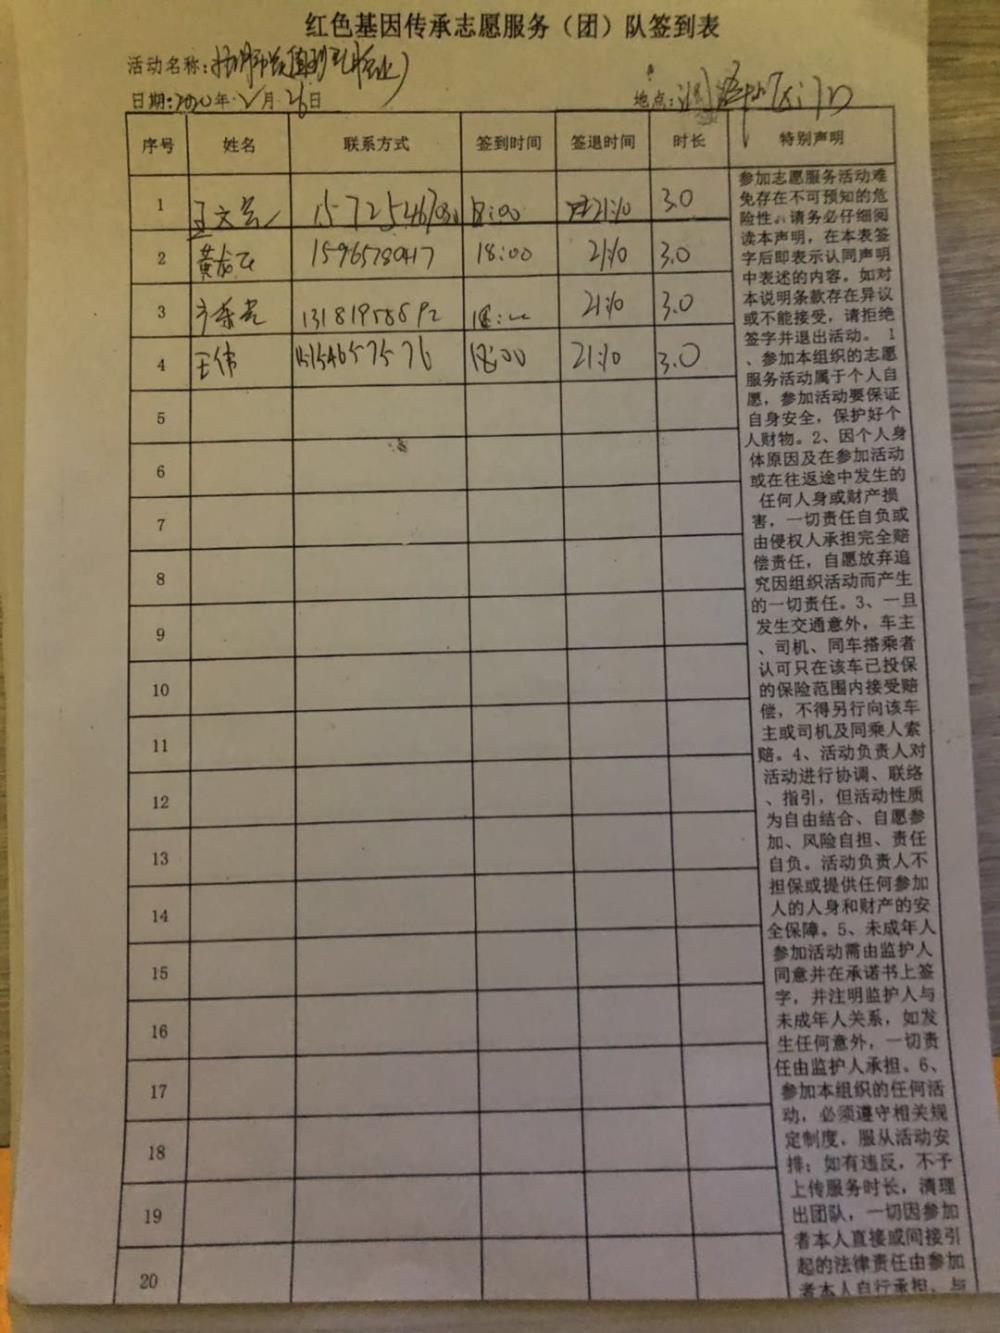 红色基因传承志愿服务（团）队签到表
活动名称:
日期:2020年.2月.26日
地点:
序号 姓名 联系方式 签到时间 签退时间 时长 特别声明
1 王文 18:00 21:10 3.0
2 黄 15965780417 18:00 21:10 3.0
3 13181958692 18: 21:10 3.0
4 王伟 15154657576 18:00 21:10 3.0
5
6
7
8
9
10
11
12
13
14
15
16
17
18
19
20
参加志愿服务活动难
免存在不可预知的危
险性。请务必仔细阅
读本声明，在本表签
字后即表示认同声明
中表述的内容。如对
本说明条款存在异议
或不能接受，请拒绝
签字并退出活动。 1
、参加本组织的志愿
服务活动属于个人自
愿，参加活动要保证
自身安全，保护好个
人财物。2、因个人身
体原因及在参加活动
或在往返途中发生的
任何人身或财产损
害，一切责任自负或
由侵权人承担完全赔
偿责任，自愿放弃追
究因组织活动而产生
的一切责任。3、一旦
发生交通意外，车主
、司机、同车搭乘者
认可只在该车已投保
的保险范围内接受赔
偿，不得另行向该车
主或司机及同乘人索
赔。4、活动负责人对
活动进行协调、联络
、指引，但活动性质
为自由结合、自愿参
加、风险自担、责任
自负。活动负责人不
担保或提供任何参加
人的人身和财产的安
全保障。5、未成年人
参加活动需由监护人
同意并在承诺书上签
字，并注明监护人与
未成年人关系，如发
生任何意外，一切责
任由监护人承担。6、
参加本组织的任何活
动，必须遵守相关规
定制度，服从活动安
排；如有违反，不予
上传服务时长，清理
出团队，一切因参加
者本人直接或间接引
起的法律责任由参加
者本人自行承担，与